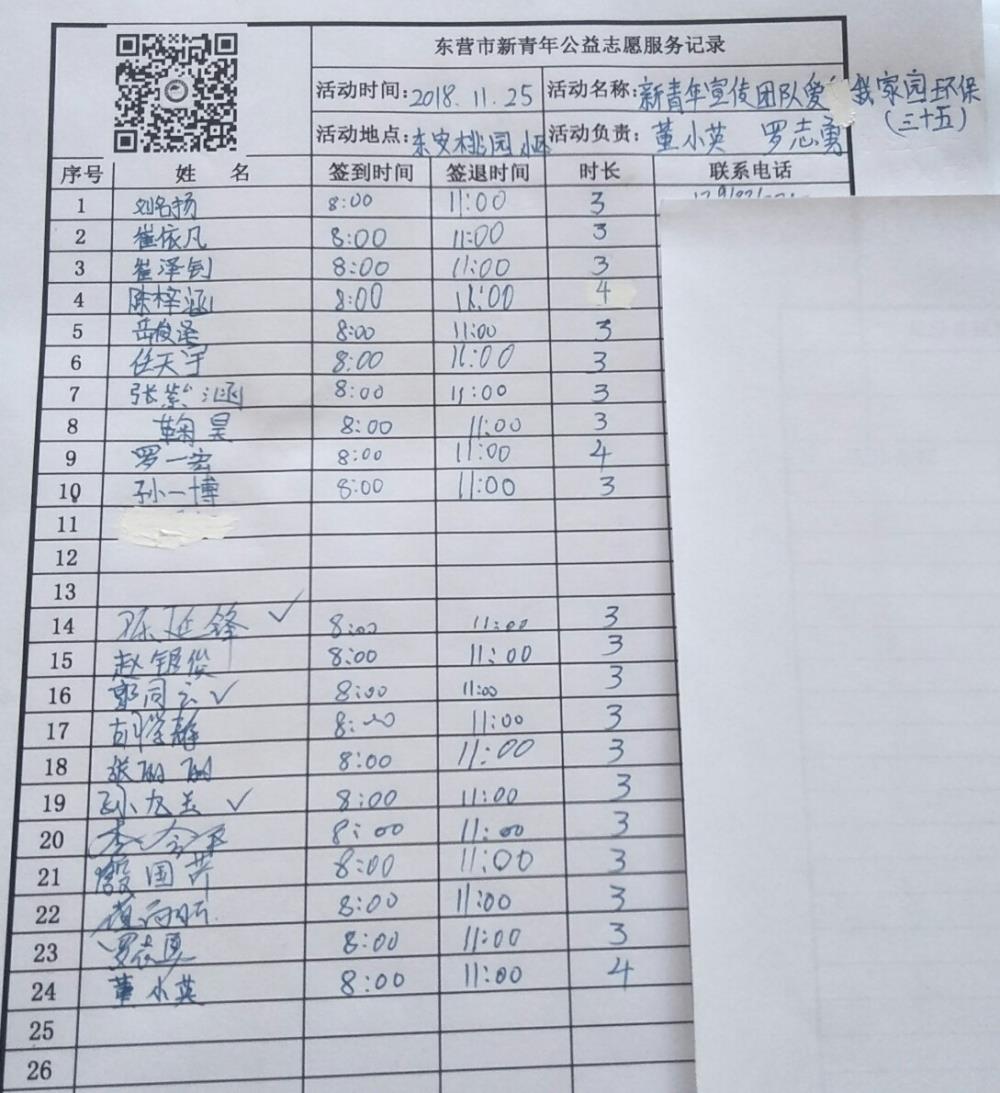 东营市新青年公益志愿服务记录
活动时间:2018.11.25 活动名称:新青年宣传团队爱 我家园环保
(三十五)
活动地点:东安桃园小区 活动负责:董小英 罗志勇
序号 姓名 签到时间 签退时间 时长 联系电话
1 刘名扬 8:00 11:00 3
2 崔依凡 8:00 11:00 3
3 崔泽钊 8:00 11:00 3
4 陈梓涵 8:00 11:00 4
5 岳俊泽 8:00 11:00 3
6 任天宇 8:00 11:00 3
7 张紫涵 8:00 11:00 3
8 鞠昊 8:00 11:00 3
9 罗一宏 8:00 11:00 4
10 孙一博 8:00 11:00 3
11
12
13
14 陈延锋 ✓ 8:00 11:00 3
15 赵银俊 8:00 11:00 3
16 郭同云 ✓ 8:00 11:00 3
17 胡学静 8:00 11:00 3
18 张丽丽 8:00 11:00 3
19 孙 ✓ 8:00 11:00 3
20 李 8:00 11:00 3
21 殷国 8:00 11:00 3
22 8:00 11:00 3
23 罗志勇 8:00 11:00 3
24 董小英 8:00 11:00 4
25
26